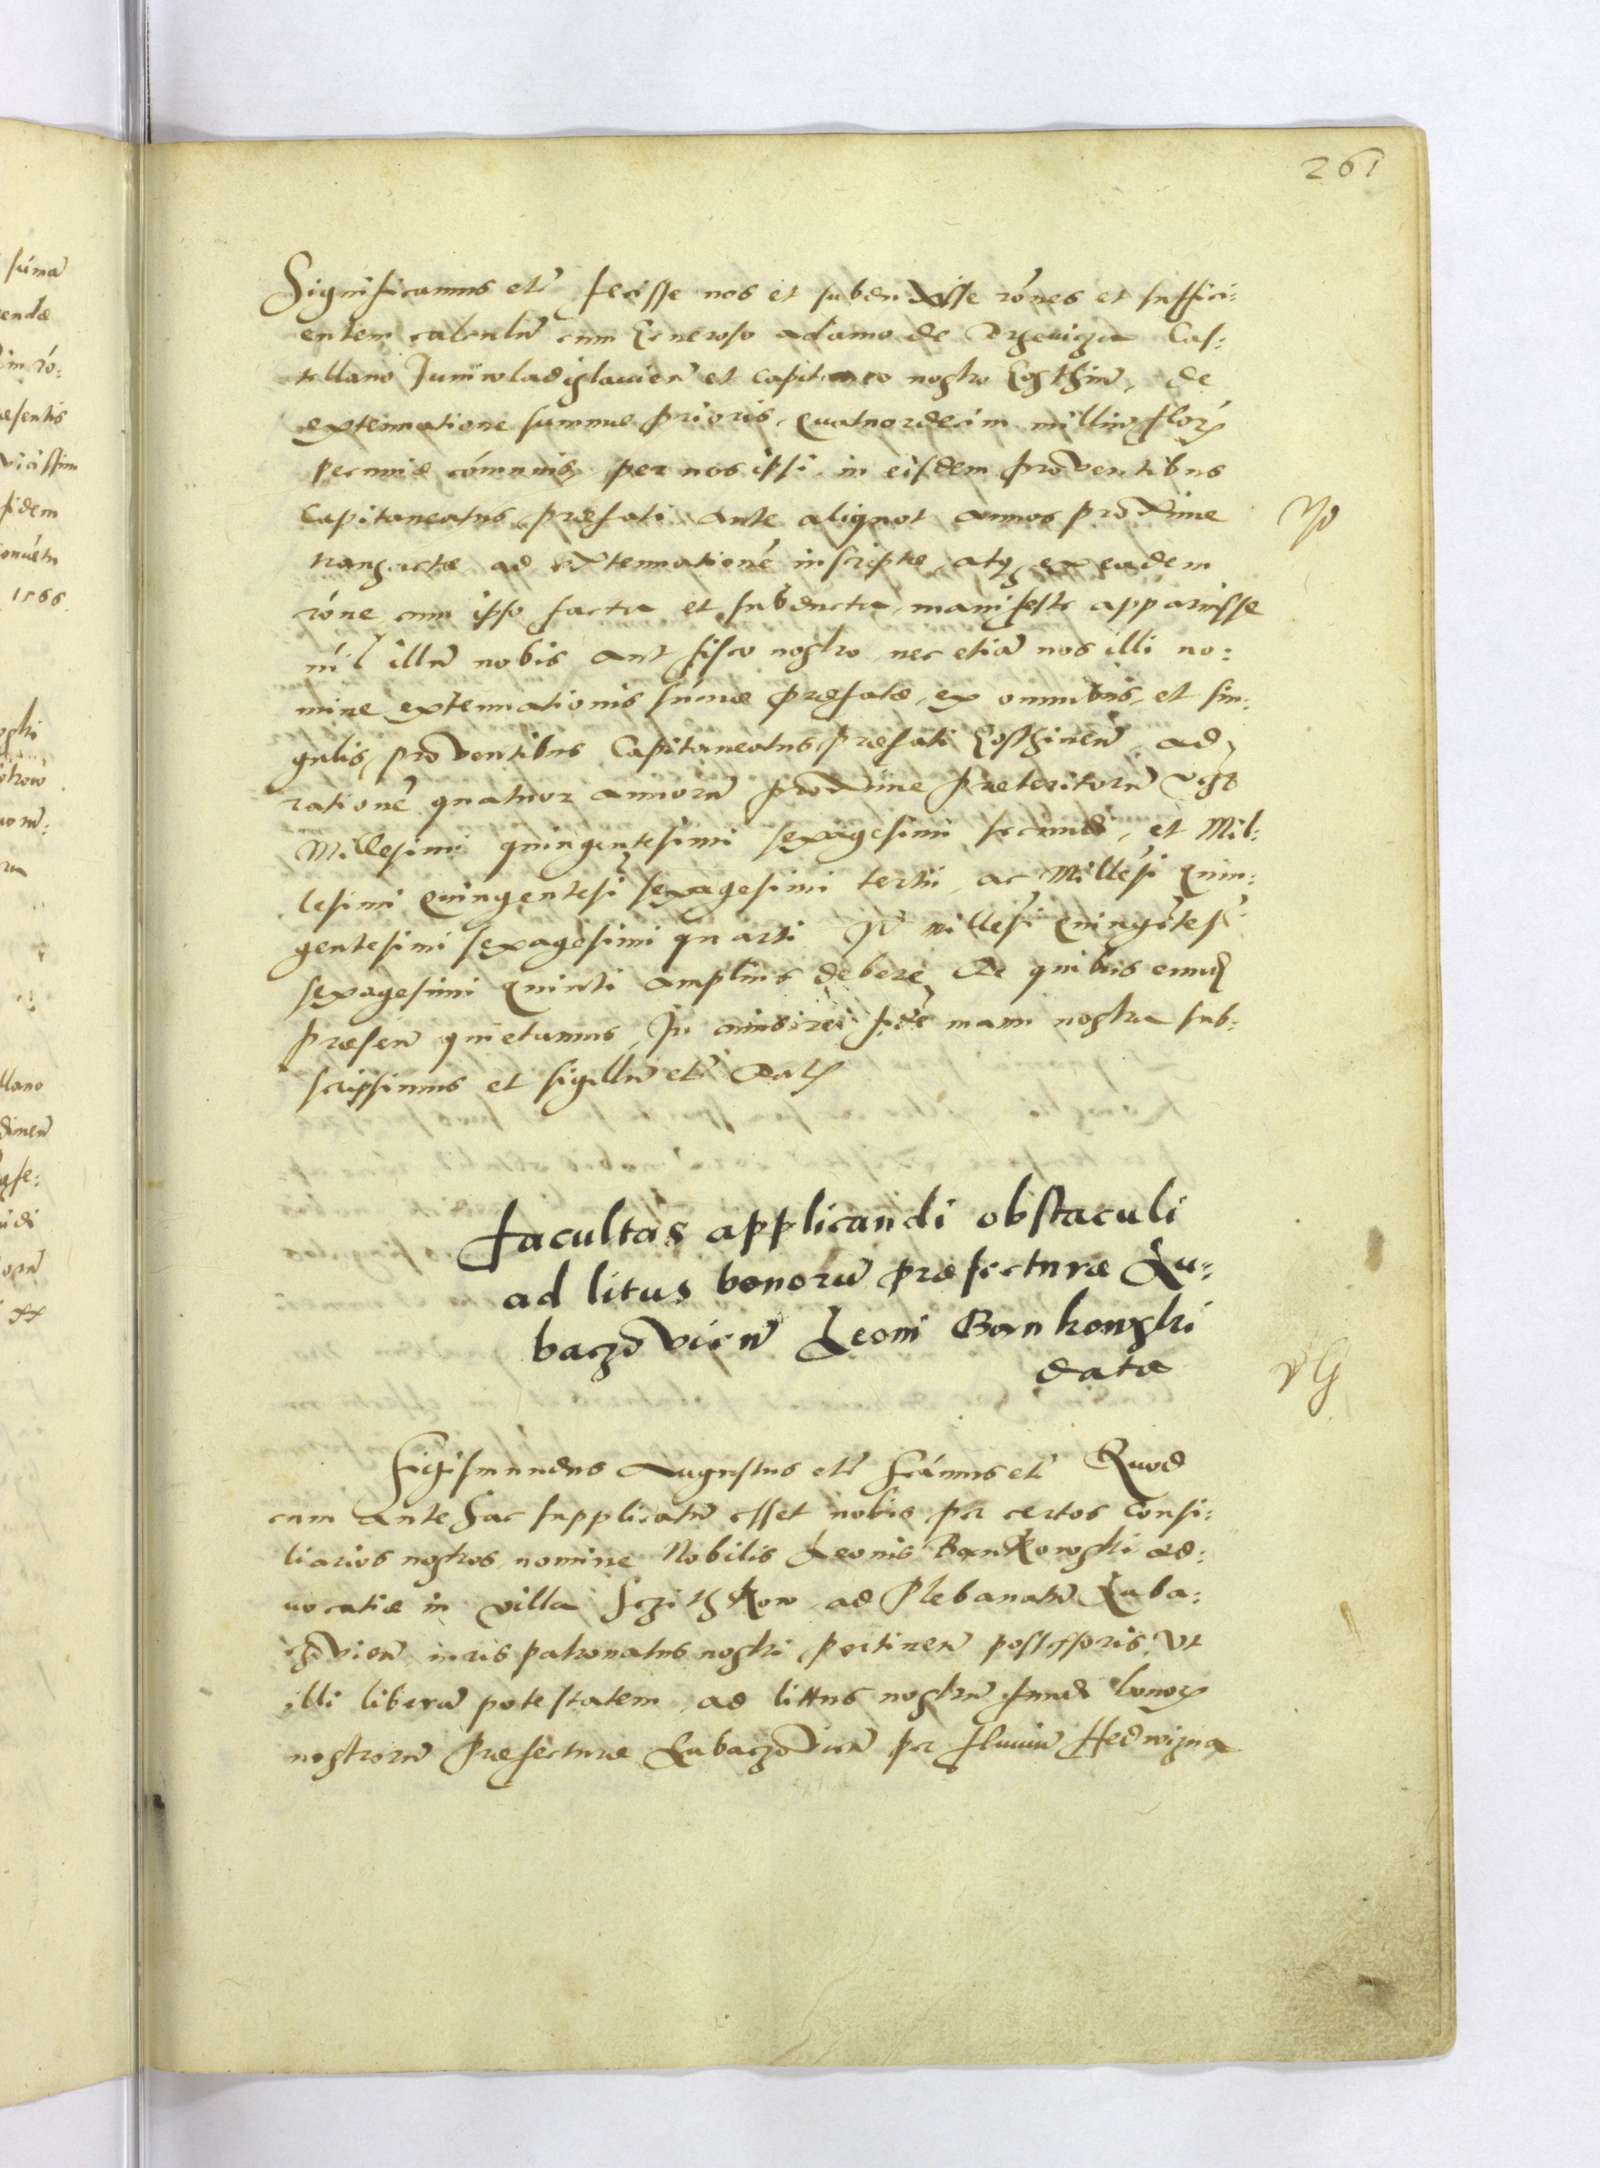 261
Significamus etc̃ fecisse nos et subduxisse rónes et suffici:
entem calculũ cum Generoso Adamo de Drzewicza Cas:
tellano Juniwladislavieñ et capitaneo nostro Gosthiñ, de
extenuatione summae prioris, quatuordecim milliũ flor
pecuniae cómunis, per nos ipsi in eisdem proventibus
Capitaneatus praefati ante aliquot annos proxime
transactae ad extenuationé inscriptae, atq̃ ex eadem
róne cum ipso facta et subducta, manifeste apparuisse
níl illũ nobis aut fisco nostro nec etiã nos illi no:
mine extenuationis súmae praefatae, ex omnibus, et sin:
gulis, proventibus Capitaneatus praefati Gosthineñ, ad
rationẽ quatuor annorũ proxime praeteritorũ vizt
Millesimi quingentesimi sexagesimi secundi, et Mil:
lesimi quingentesĩ sexagesimi tertii, ac Millẽsi Quin:
gentesimi sexagesimi quarti Jtẽ millẽsi quingẽtesĩ
sexagesimi quinti amplius debere, De quibus eumq̃
praeseñ quietamus, Jn cuius rei fidẽ manu nostra sub:
scripsimus et sigillũ etc̃ Dat
Facultas applicandi obstaculi
ad litus bonorũ praefecturae Lu:
baczovieñ Leoni Bankowski
data
Sigismundus Augustus etc̃ Scámus etc̃ Quod
cum antehac supplicatũ esset nobis per certos Consi:
liarios nostros nomine Nobilis Leonis Bankowski ad:
vocatiae in villa Sczithkow ad Plebanatũ Luba:
czovieñ iuris patronatus nostri pertineñ possessoris, Ut
illi liberã potestatem ad littus nostrũ fundi bonor
nostrorũ Praefecturae Lubaczovieñ per fluviũ Hedwigna